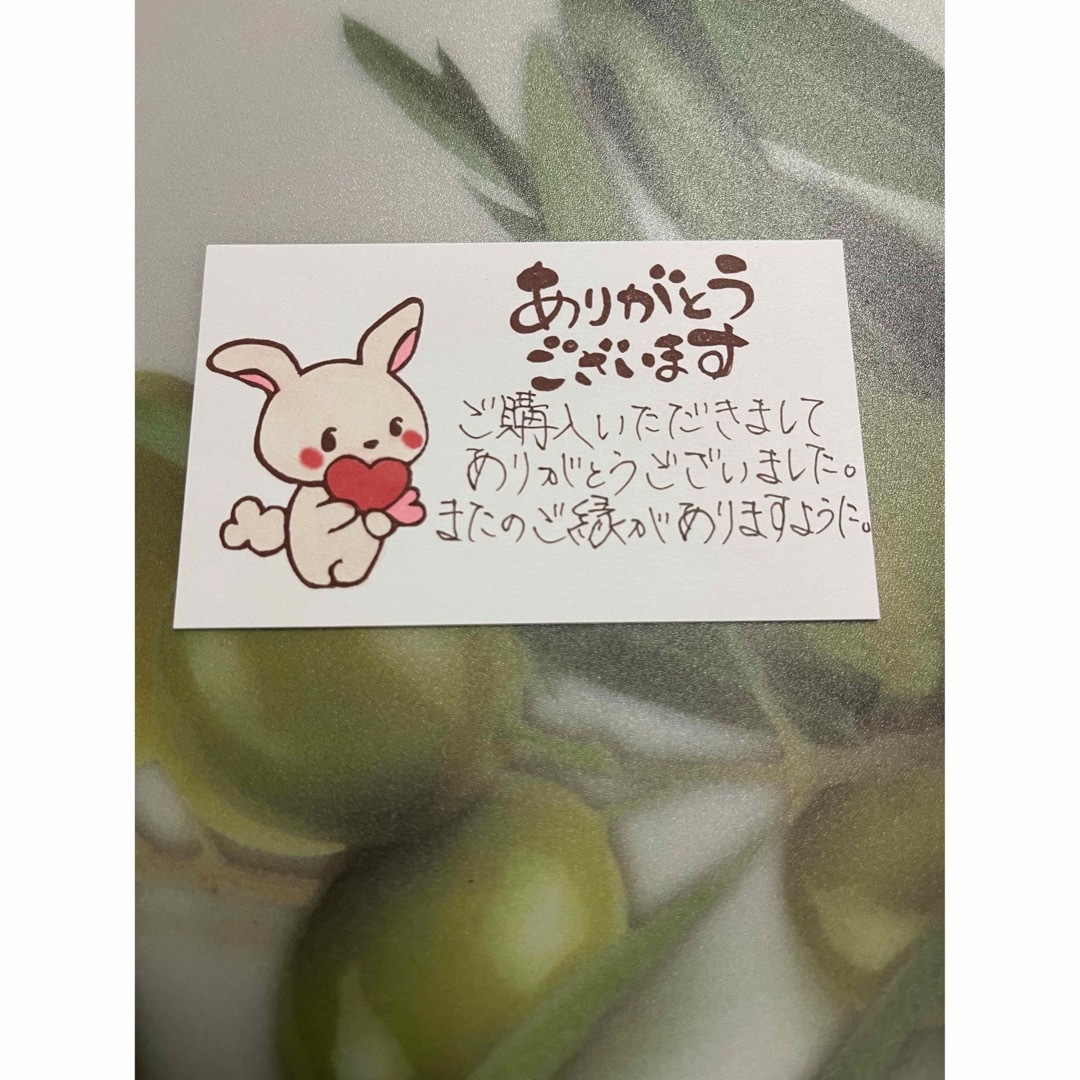 ありがとう
ございます
ご購入いただきまして
ありがとうございました。
またのご縁がありますように。